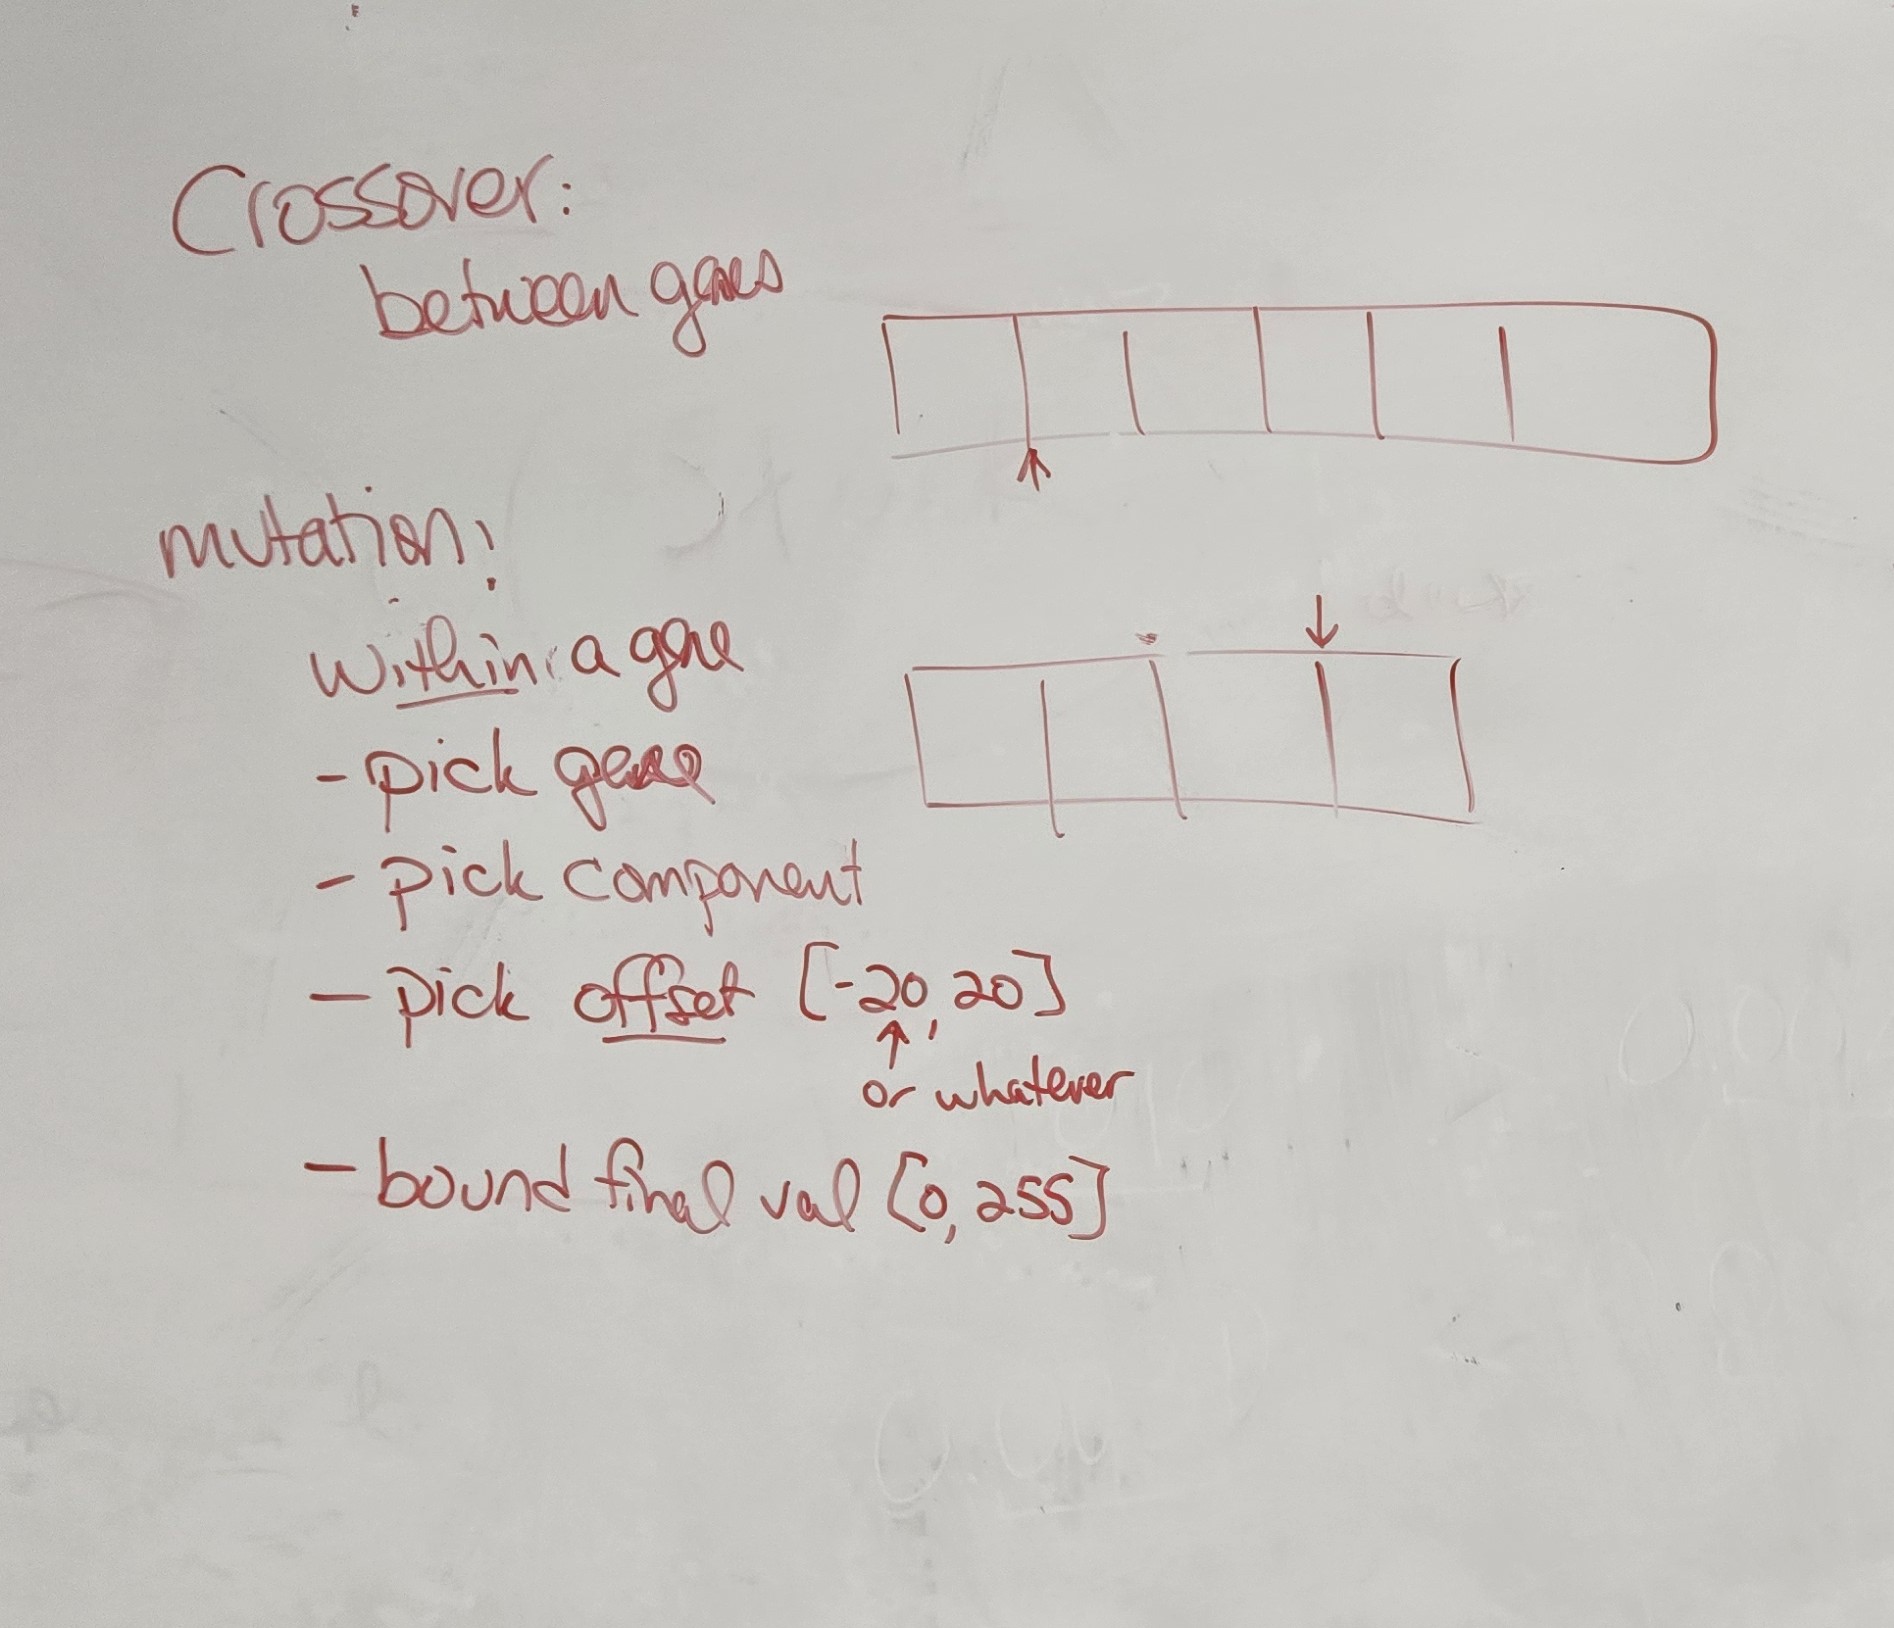 Crossover:
between genes
mutation:
within a gene
- pick gene
- pick component
- pick offset [-20, 20]
or whatever
- bound final val [0, 255]